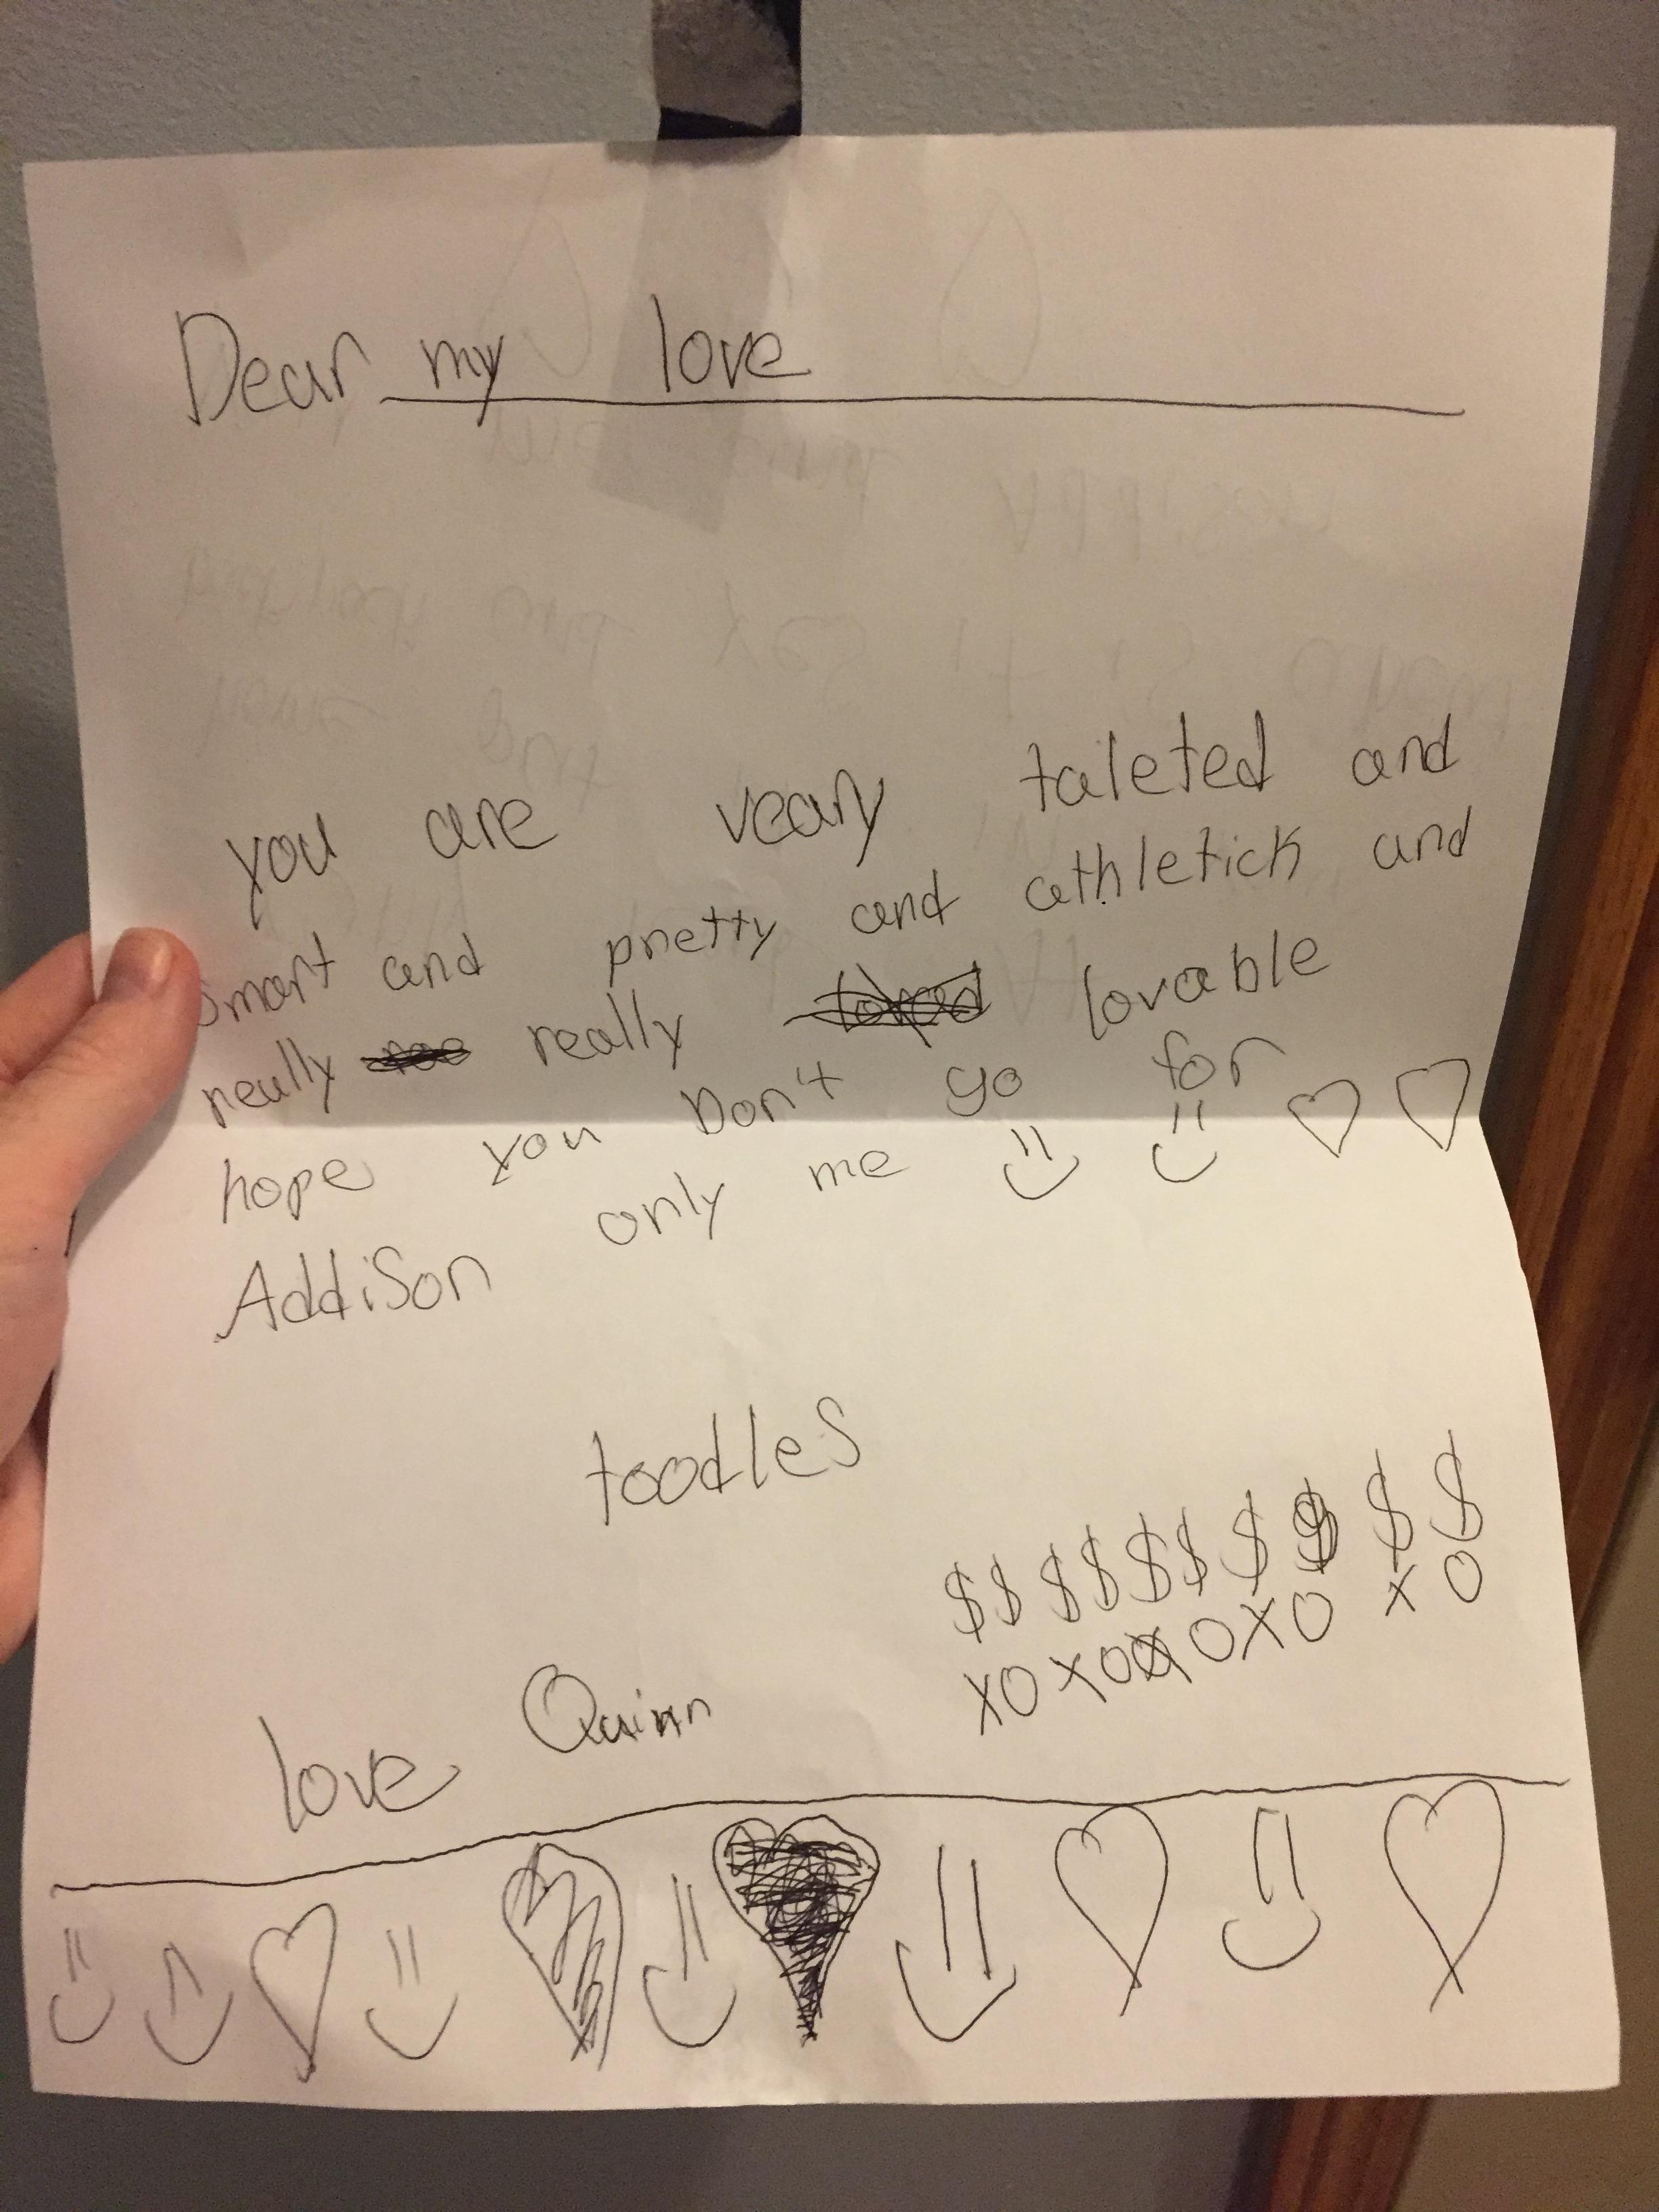 Dear my love
you are veary taleted and
smart and pretty and athletick and
really really lovable
hope you Don't go for
Addison only me
toodles
$$ $$ $$ $ $ $$
love Quinn xoxo oxo xo